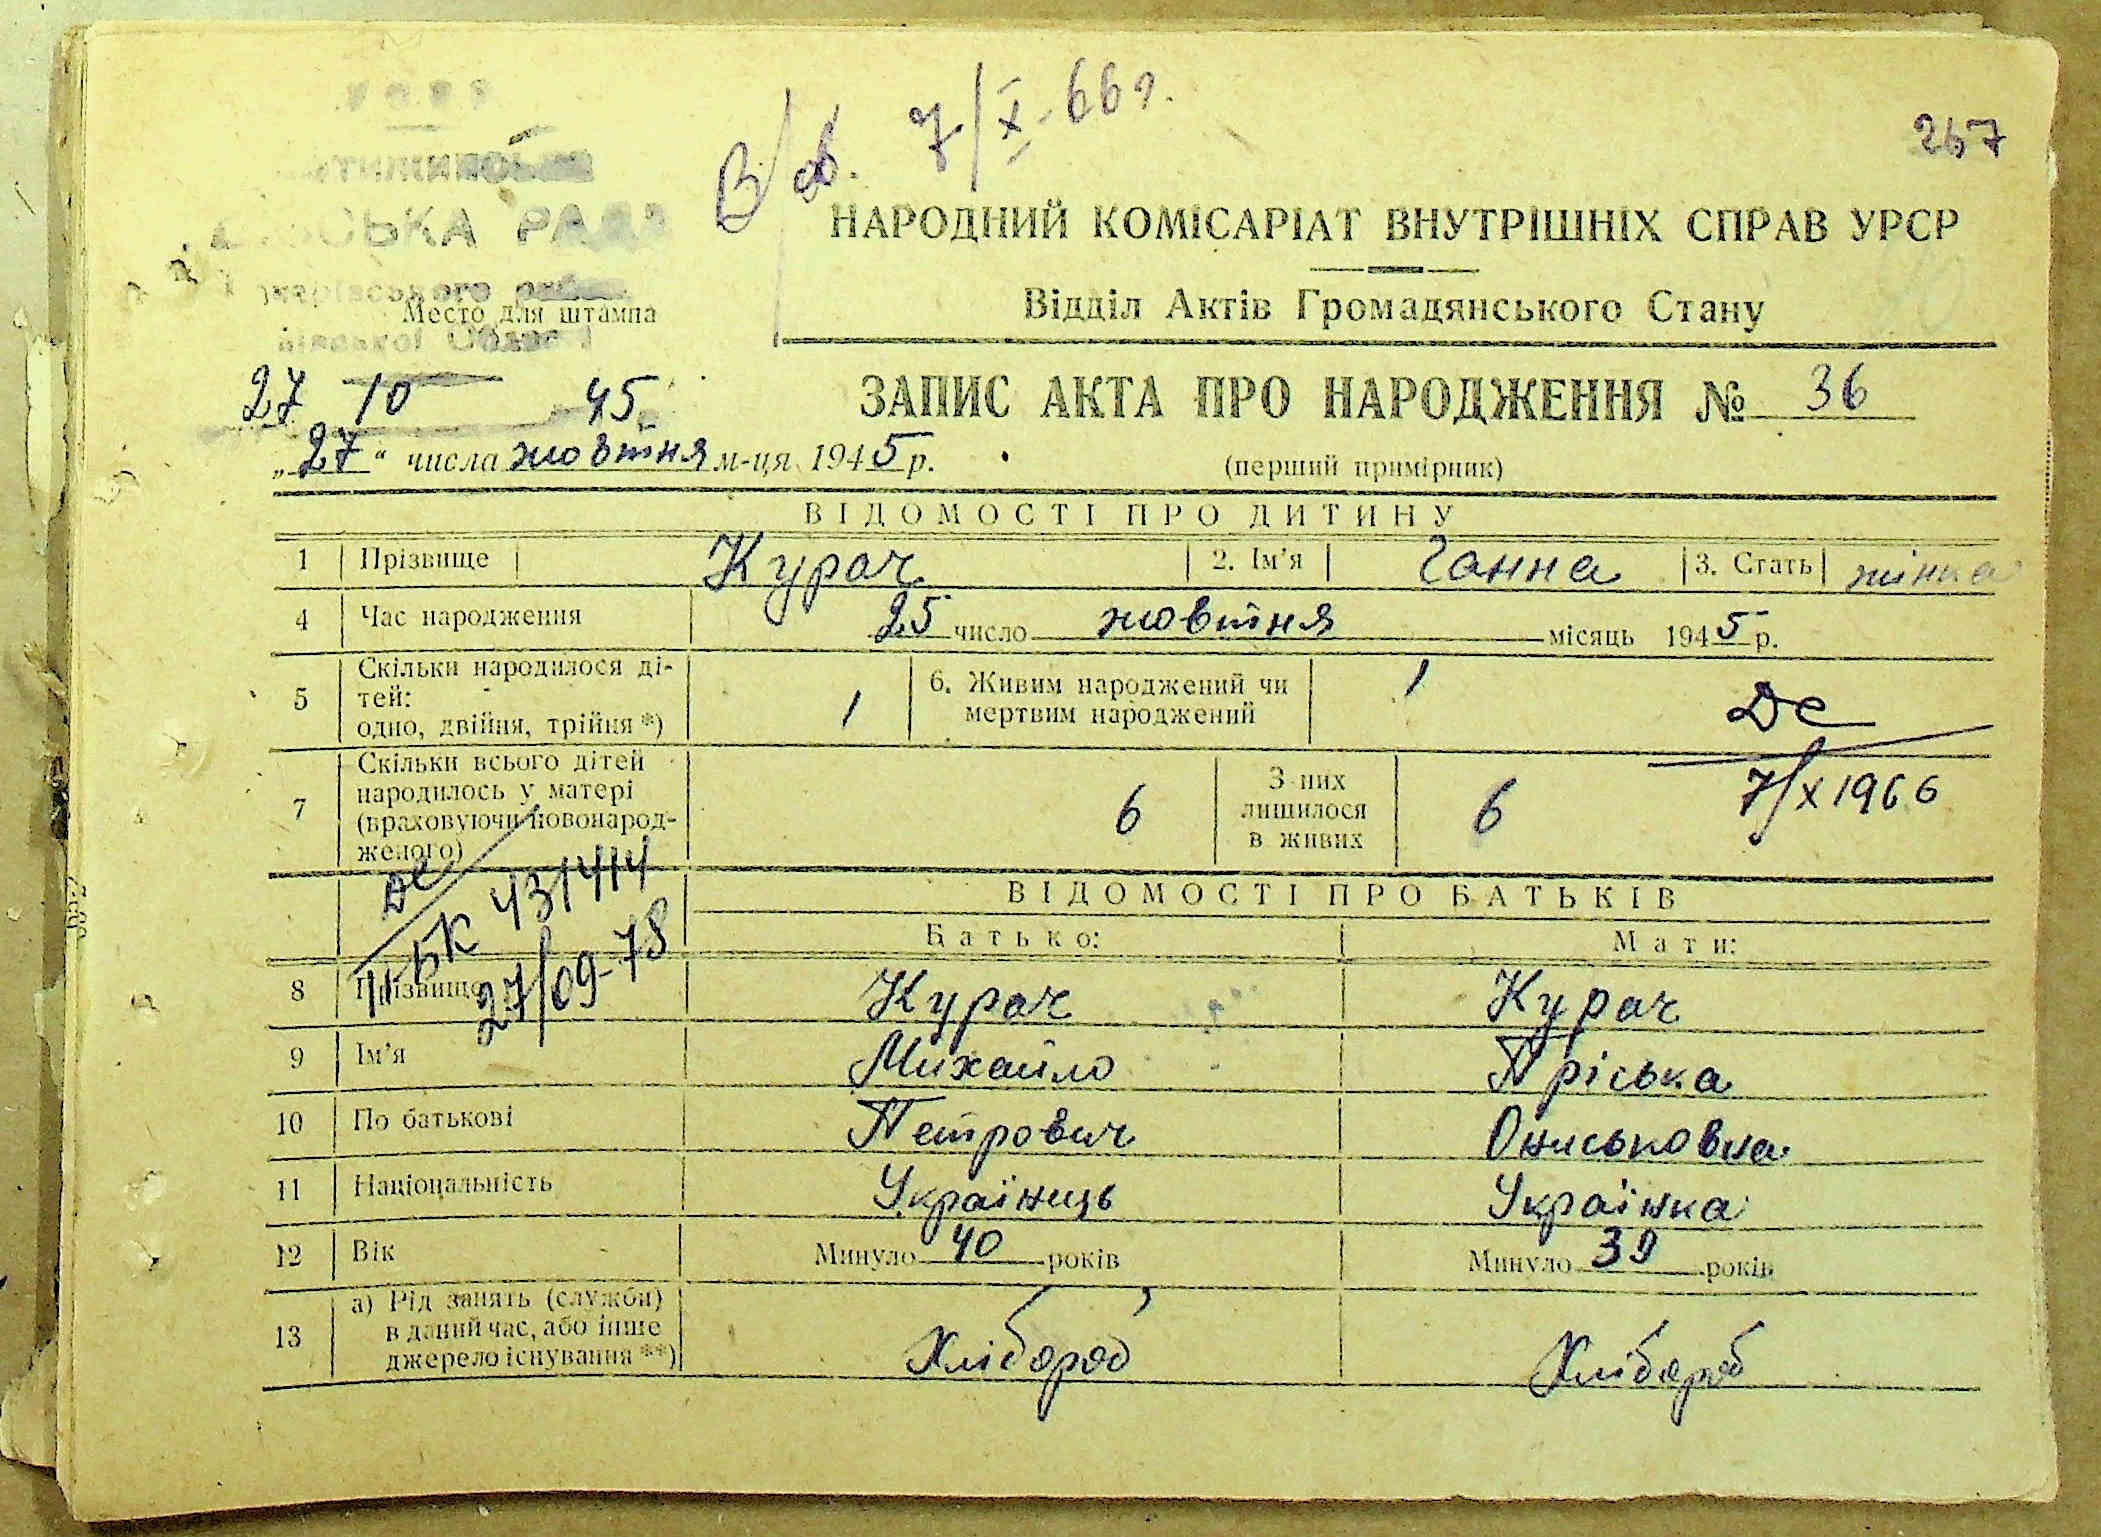 В/об. 7/X-66 г.
267
СЬКА РАДА
НАРОДНИЙ КОМІСАРІАТ ВНУТРІШНІХ СПРАВ УРСР
Место для штампа
Відділ Актів Громадянського Стану
27 10 45
ЗАПИС АКТА ПРО НАРОДЖЕННЯ № 36
„27“ числа жовтня м-ця 1945 р.
(перший примірник)
ВІДОМОСТІ ПРО ДИТИНУ
1 Прізвище Курач 2. Ім'я Ганна 3. Стать жінка
4 Час народження 25 число жовтня місяць 1945 р.
5 Скільки народилося ді-
тей:
одно, двійня, трійня *) 1
6. Живим народжений чи
мертвим народжений 1
Де
7/X 1966
7 Скільки всього дітей
народилось у матері
(враховуючи новонарод-
женого) 6
З них
лишилося
в живих 6
Де
II-БК 431414
27/09-78
ВІДОМОСТІ ПРО БАТЬКІВ
Батько: Мати:
8 Прізвище Курач Курач
9 Ім'я Михайло Пріська
10 По батькові Петрович Ониськовна
11 Національність Українець Українка
12 Вік Минуло 40 років Минуло 39 років
13 а) Рід занять (служби)
в даний час, або інше
джерело існування **) Хлібороб Хлібороб